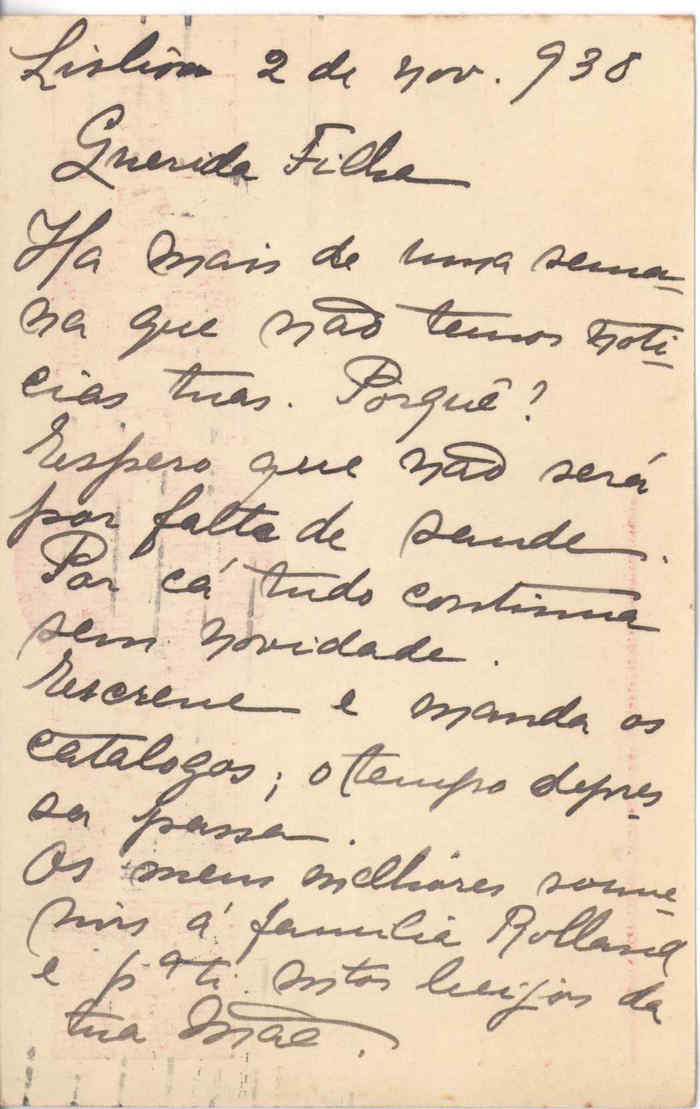 Lisbôa 2 de nov. 938
Querida Filha
Ha mais de uma sema-
na que não temos noti-
cias tuas. Porquê?
Espero que não será
por falta de saude.
Por cá tudo continua
sem novidade.
Escreve e manda os
catalogos; o tempo depres
sa passa.
Os meus melhóres souve-
nirs á familia Rolland
e pª ti mtos beijos da
tua Mãe.